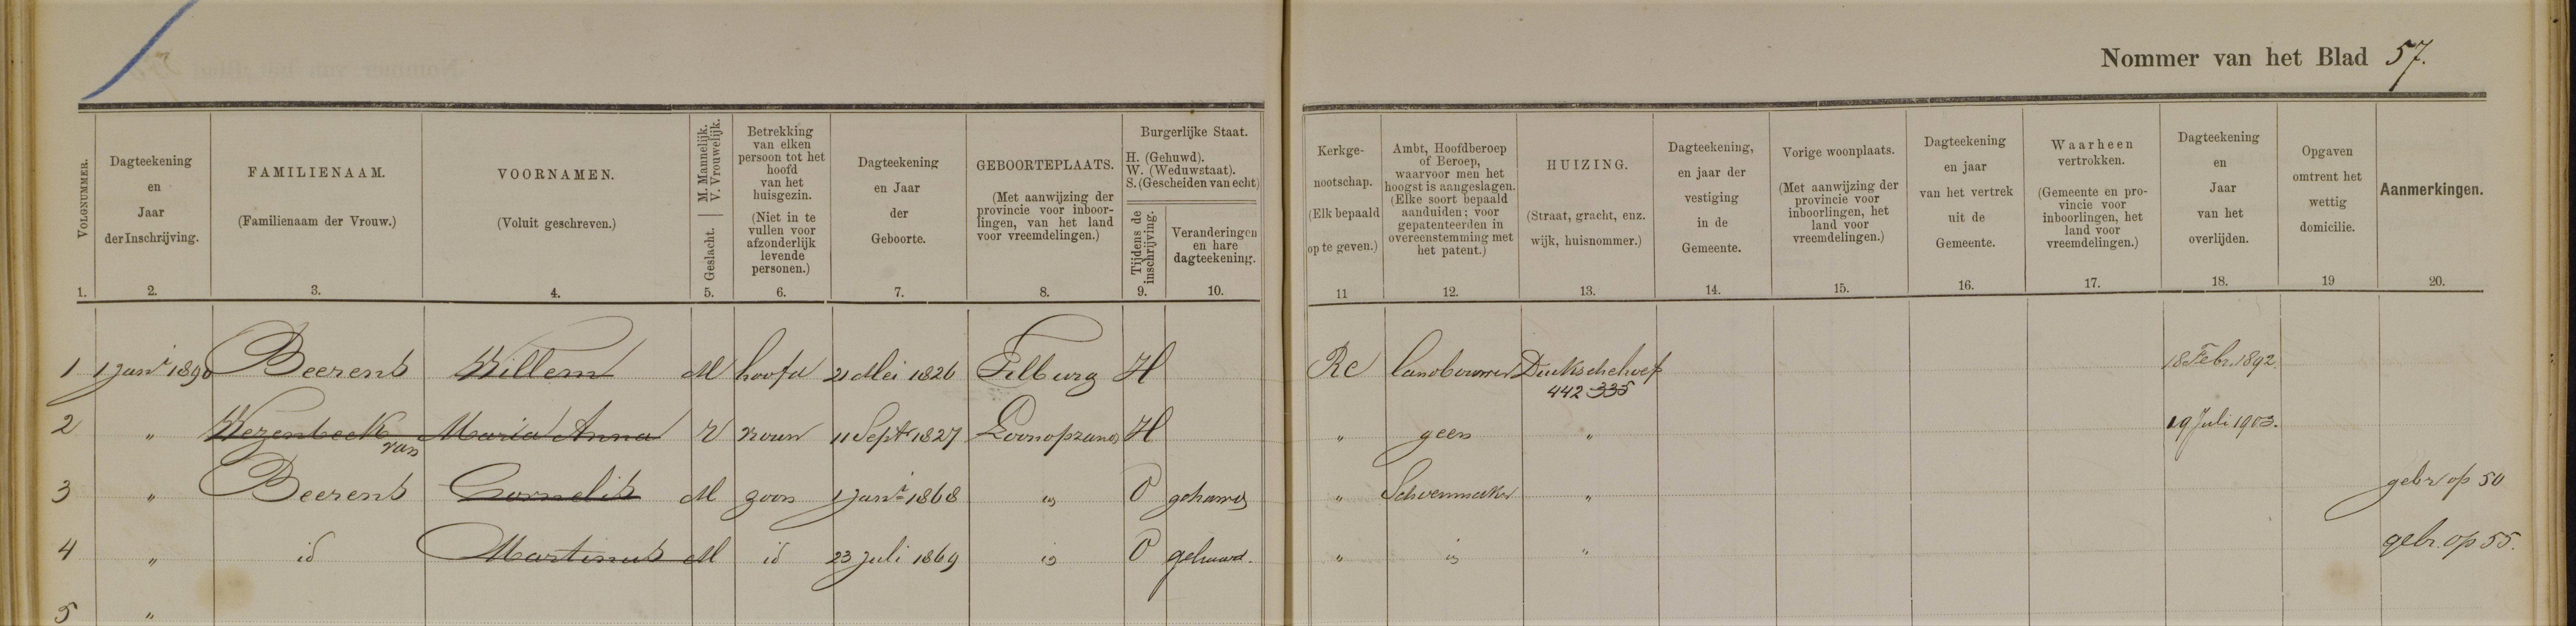 Nommer van het Blad 57.
VOLGNUMMER.
1.
Dagteekening
en
Jaar
der Inschrijving.
2.
FAMILIENAAM.
(Familienaam der Vrouw.)
3.
VOORNAMEN.
(Voluit geschreven.)
4.
Geslacht. | M. Mannelijk.
V. Vrouwelijk.
5.
Betrekking
van elken
persoon tot het
hoofd
van het
huisgezin.
(Niet in te
vullen voor
afzonderlijk
levende
personen.)
6.
Dagteekening
en Jaar
der
Geboorte.
7.
GEBOORTEPLAATS.
(Met aanwijzing der
provincie voor inboor-
lingen, van het land
voor vreemdelingen.)
8.
Burgerlijke Staat.
H. (Gehuwd).
W. (Weduwstaat).
S. (Gescheiden van echt)
Tijdens de
inschrijving.
9.
Veranderingen
en hare
dagteekening.
10.
Kerkge-
nootschap.
(Elk bepaald
op te geven.)
11
Ambt, Hoofdberoep
of Beroep,
waarvoor men het
hoogst is aangeslagen.
(Elke soort bepaald
aanduiden; voor
gepatenteerden in
overeenstemming met
het patent.)
12.
HUIZING.
(Straat, gracht, enz.
wijk, huisnommer.)
13.
Dagteekening,
en jaar der
vestiging
in de
Gemeente.
14.
Vorige woonplaats.
(Met aanwijzing der
provincie voor
inboorlingen, het
land voor
vreemdelingen.)
15.
Dagteekening
en jaar
van het vertrek
uit de
Gemeente.
16.
Waarheen
vertrokken.
(Gemeente en pro-
vincie voor
inboorlingen, het
land voor
vreemdelingen.)
17.
Dagteekening
en
Jaar
van het
overlijden.
18.
Opgaven
omtrent het
wettig
domicilie.
19
Aanmerkingen.
20.
1 1 Janr 1890 Beerens Willem M hoofd 21 Mei 1826 Tilburg H RC landbouwer 442 335 18 Febr. 1892.
2 " Wezenbeek van Maria Anna V vrouw 11 Septr 1827 Loonopzand H " geen " 19 Juli 1903.
3 " Beerens Cornelis M zoon 1 Janr 1868 id O gehuwd " Schoenmaker " gebr op 50
4 " id Martinus M id 23 Juli 1869 id O gehuwd. " id " gebr. op 55.
5 "